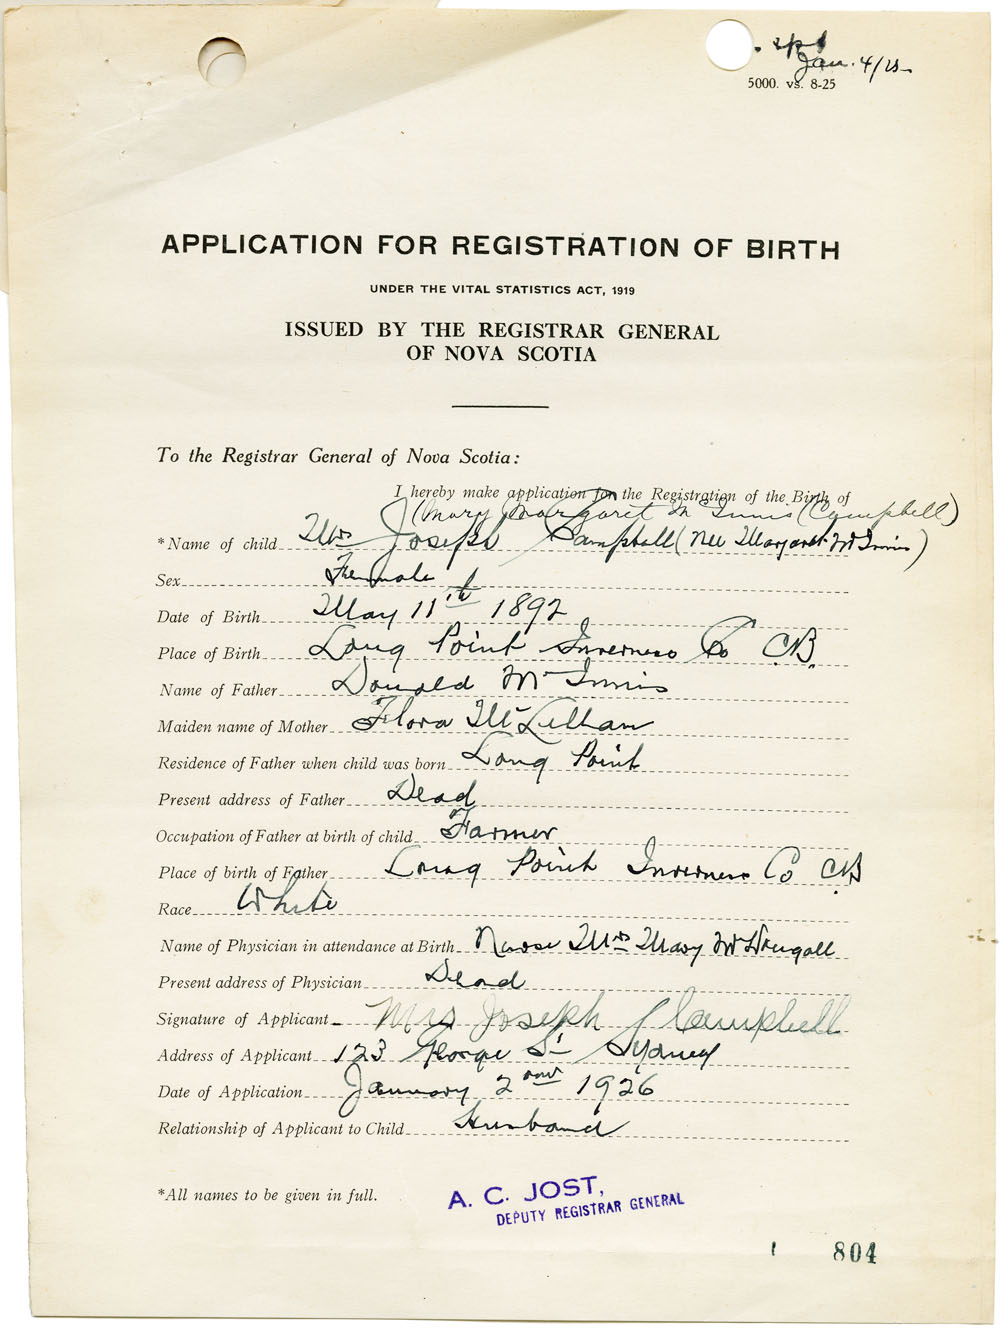 Jan. 4/25
5000. vs. 8-25
APPLICATION FOR REGISTRATION OF BIRTH
UNDER THE VITAL STATISTICS ACT, 1919
ISSUED BY THE REGISTRAR GENERAL
OF NOVA SCOTIA
To the Registrar General of Nova Scotia:
I hereby make application for the Registration of the Birth of
(Mary Margaret McInnis (Campbell)
*Name of child Mrs Joseph Campbell (nee Margaret McInnis)
Sex Female
Date of Birth May 11th 1892
Place of Birth Long Point Inverness Co C.B.
Name of Father Donald McInnis
Maiden name of Mother Flora McLellan
Residence of Father when child was born Long Point
Present address of Father Dead
Occupation of Father at birth of child Farmer
Place of birth of Father Long Point Inverness Co C.B.
Race White
Name of Physician in attendance at Birth Nurse Mrs Mary McDougall
Present address of Physician Dead
Signature of Applicant Mrs Joseph Campbell
Address of Applicant 123 George St Sydney
Date of Application January 2nd 1926
Relationship of Applicant to Child Husband
*All names to be given in full.
A. C. JOST,
DEPUTY REGISTRAR GENERAL
804